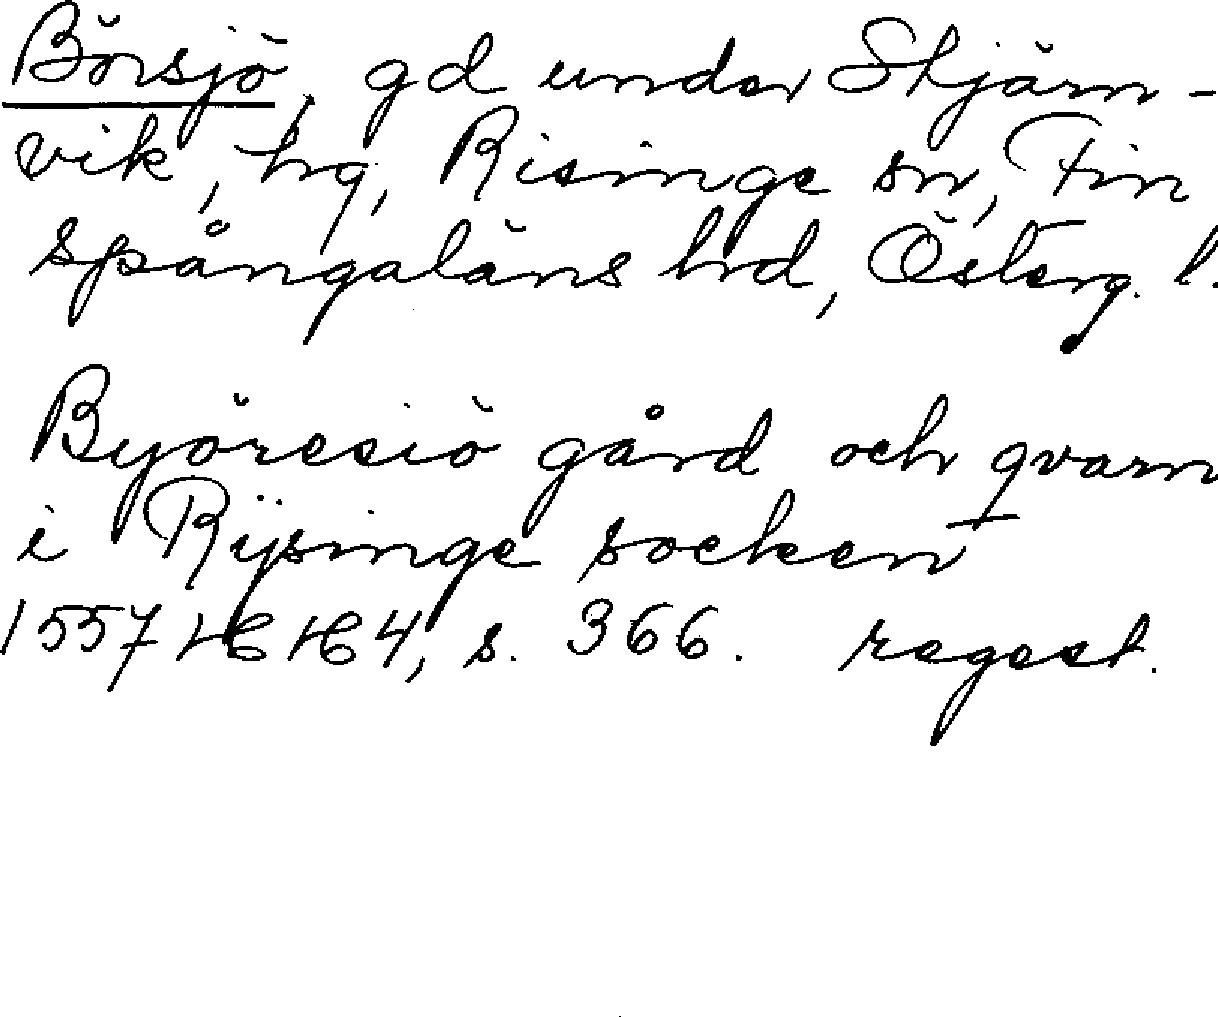 Börsjö, gd under Stjärn-
vik, hg, Risinge sn, Fin
spångaläns hrd, Österg. l.
Byöresiö gård och qvarn
i Rÿsinge socken
1557 HH 4, s. 366. regest.